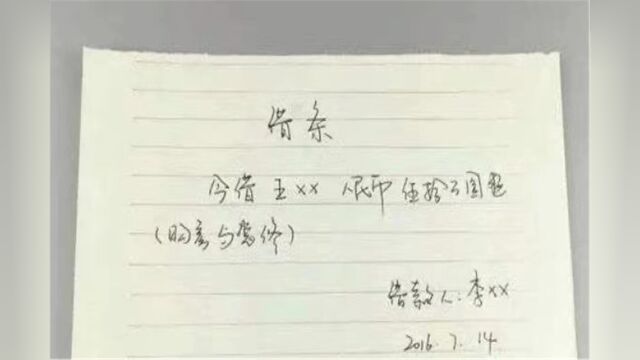 借条
今借 王xx 人民币 伍拾万圆整
(购房与装修)
借款人:李xx
2016.7.14